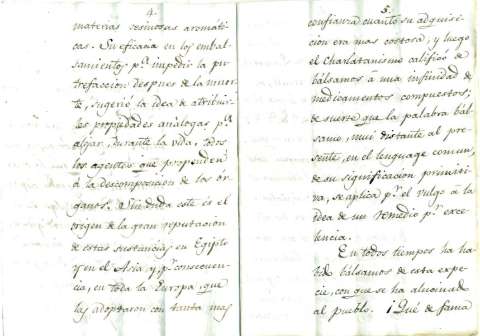 4.
materias resinosas aromáti-
cas. Su eficacia en los embal-
samientos p.ª impedir la pu-
trefaccion despues de la muer-
te, sugerió la idea de atribuir-
les propiedades análogas p.ª
alejar, durante la vida, todos
los agentes que propenden
á la descomposicion de los ór-
ganos. Sin duda este es el
orígen de la gran reputacion
de estas sustancias en Egipto
y en el Asia, y, p.r consecuen-
cia, en toda la Europa, que
las adoptaron con tanta mas
5.
confianza cuanto su adquisi-
cion era mas costosa, y luego
el charlatanismo calificó de
bálsamos á una infinidad de
medicamentos compuestos;
de suerte que la palabra bál-
samo, mui distante al pre-
sente, en el lenguage comun,
de su significacion primiti-
va, se aplica p.r el vulgo á la
idea de un remedio p.r exce-
lencia.
En todos tiempos ha ha-
bido bálsamos de esta espe-
cie, con que se ha alucinado
al pueblo. ¡Qué de fama